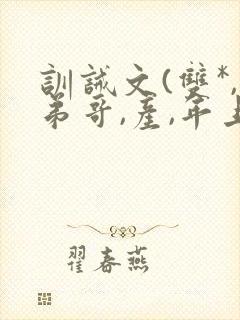 訓誡文(雙*,
弟哥,產,年上
翟春燕